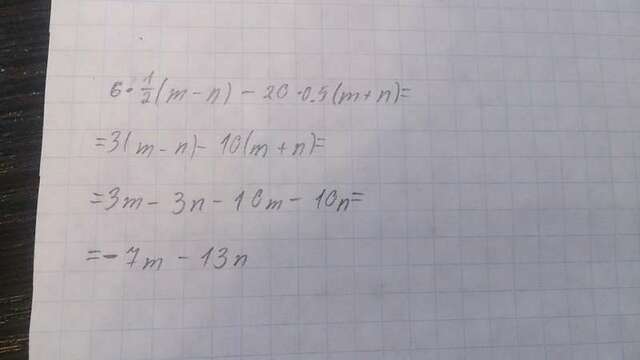 6·½(m-n)-20·0.5(m+n)=
=3(m-n)-10(m+n)=
=3m-3n-10m-10n=
=-7m-13n